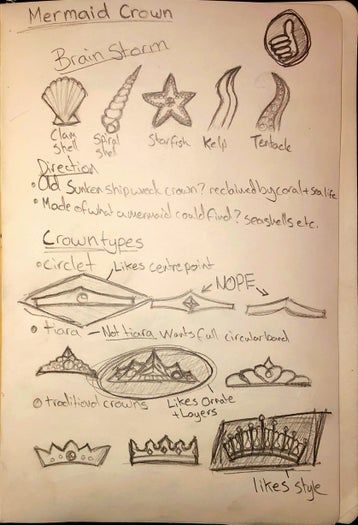 Mermaid Crown
Brain Storm
Clam Shell
Spiral Shel
Starfish
Kelp
Tentacle
Direction
• Old Sunken shipwreck crown? reclaimed by coral + sealife
• Made of what a mermaid could find? seashells etc.
Crown types
• circlet
Likes centre point
NOPE
• tiara — Not tiara wants full circular band
Likes Ornate + Layers
• traditional crowns
likes style